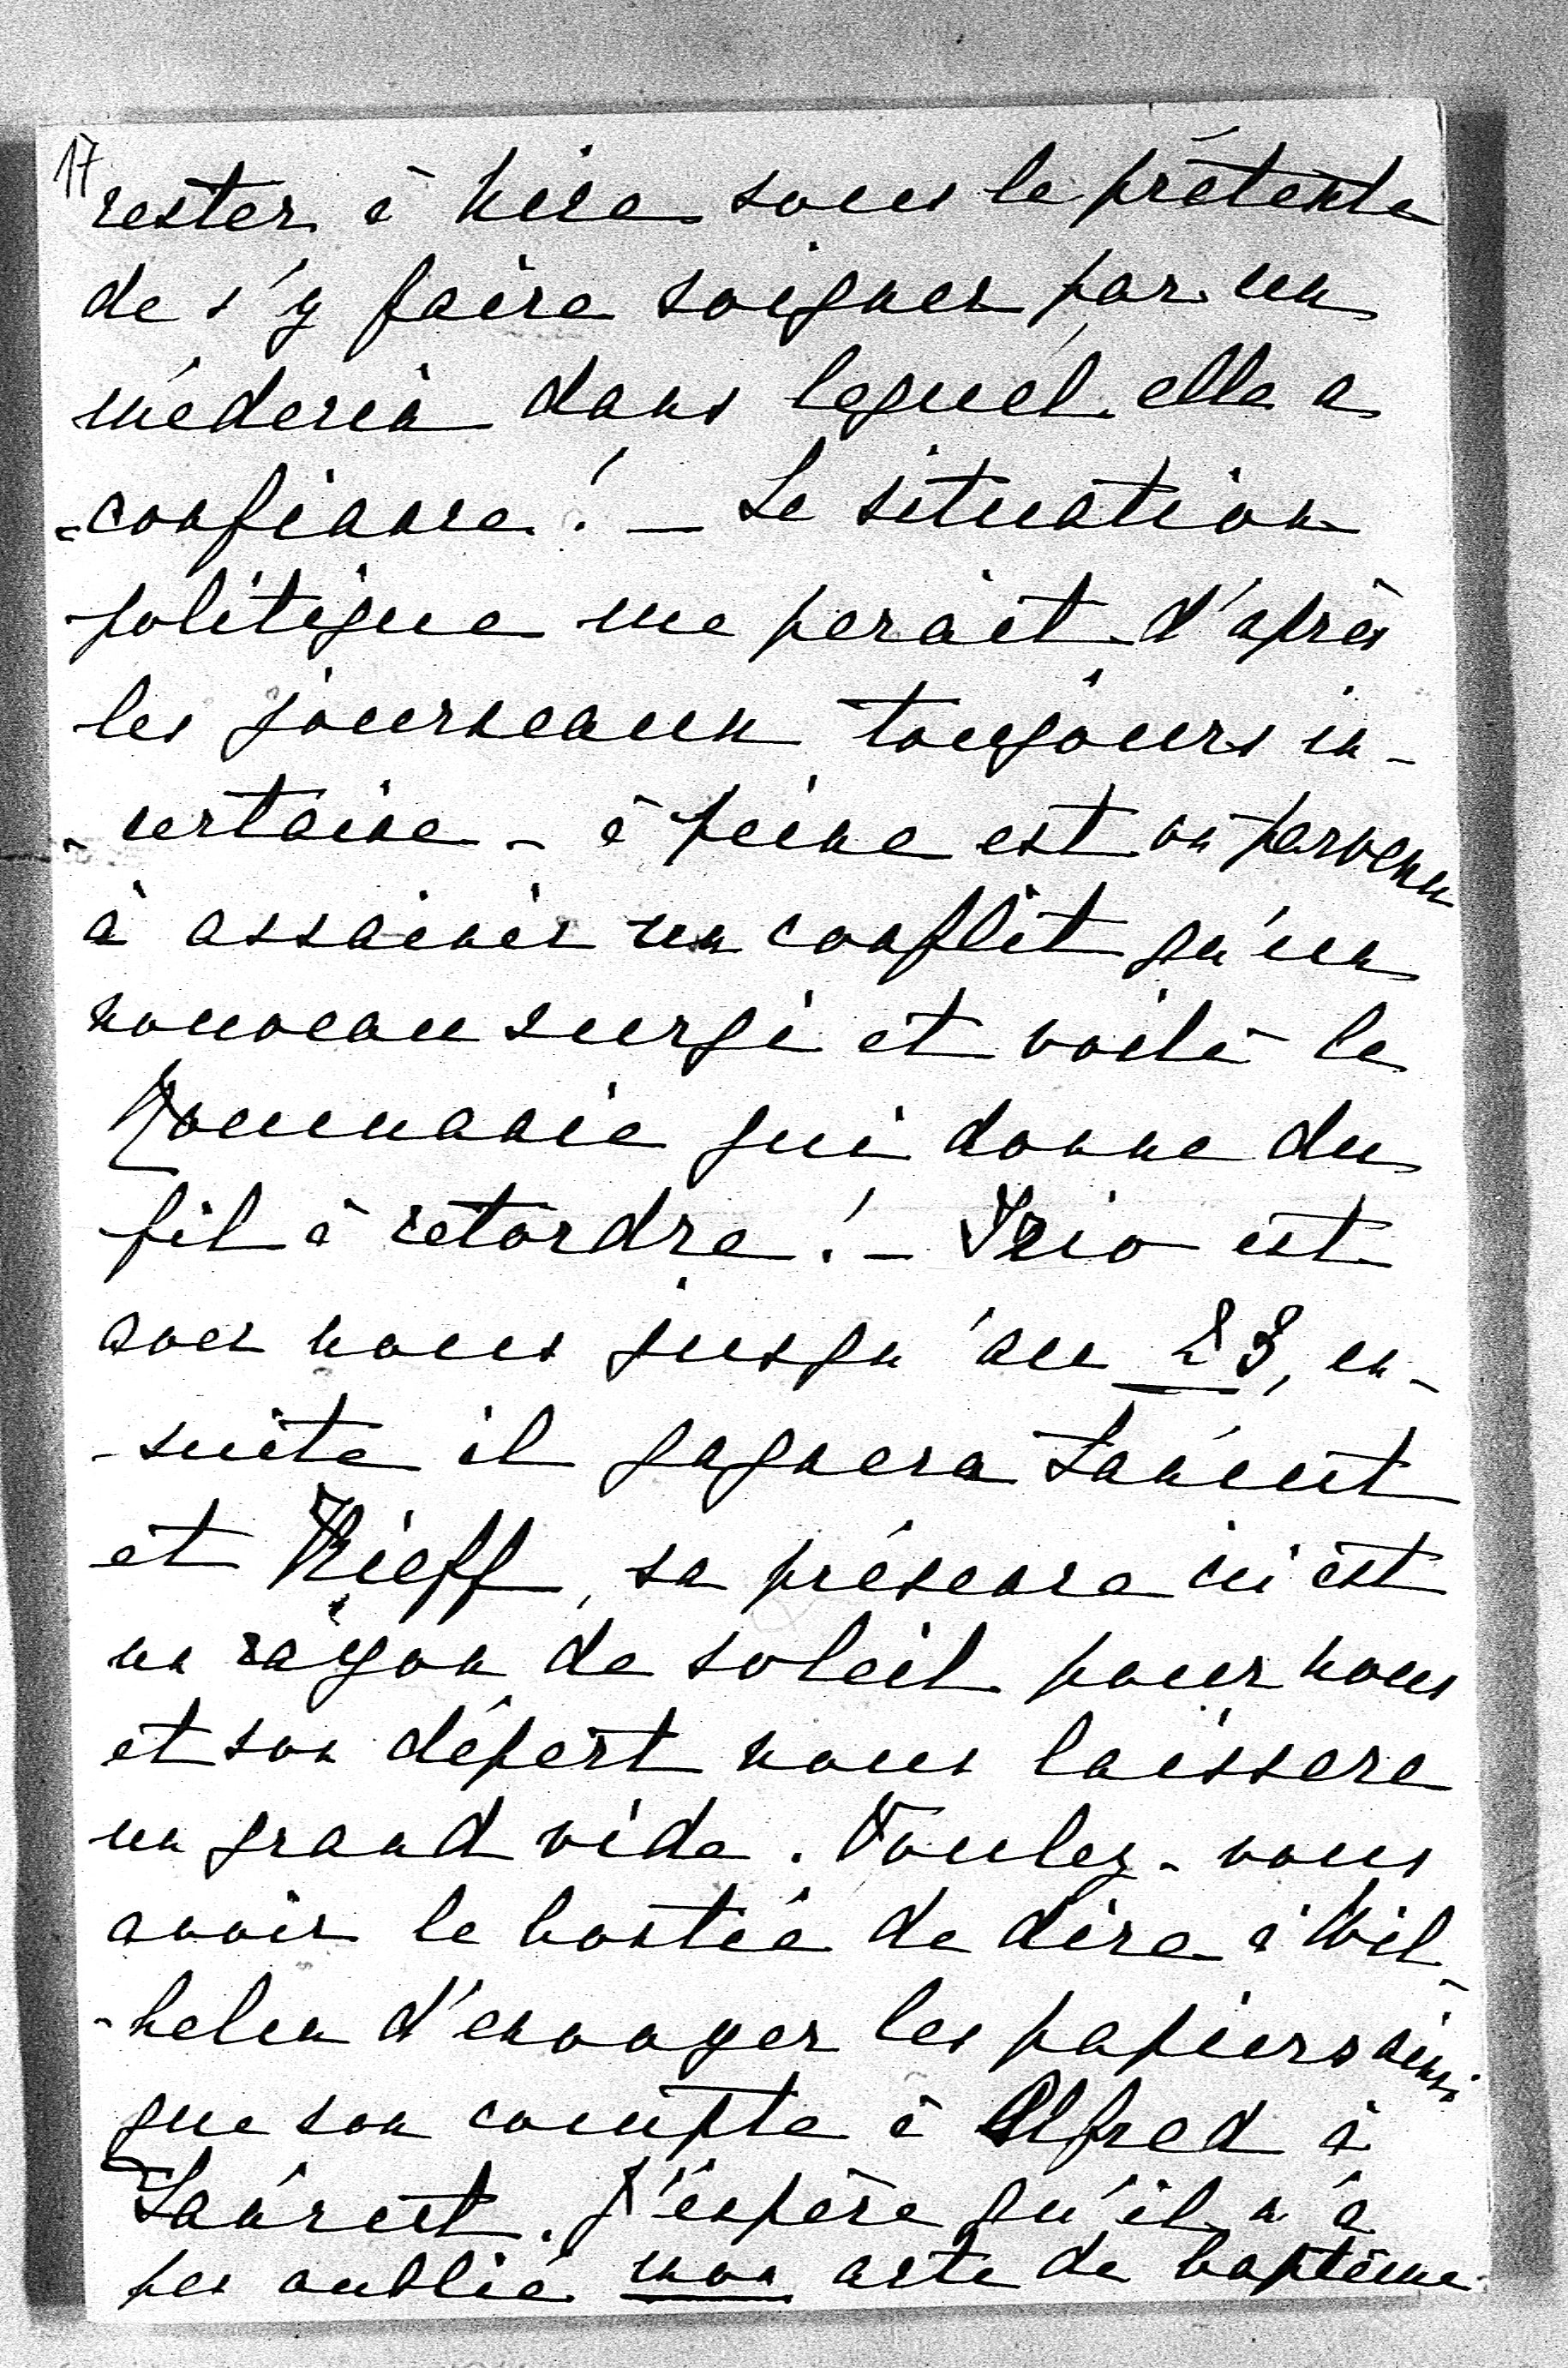 17
rester à Nice sous le prétexte
de s'y faire soigner par un
médecin dans lequel elle a
confiance! – La situation
politique me parait d'après
les journeaux toujours in-
-certaine – à peine est on parvenu
à assainir un conflit qu'un
nouveau surgi et voilà la
Roumanie qui donne du
fil à retordre! – est
avec nous jusqu'au 23, en-
-suite il gagnera
et Kieff, sa présence ici est
un rayon de soleil pour nous
et son départ nous laissera
un grand vide. Voulez-vous
avoir la bontée de dire à Wil-
-helm d'envoyer les papiers ainsi
que son compte à Alfred à
J'espère qu'il n'a
pas oublié mon acte de baptême